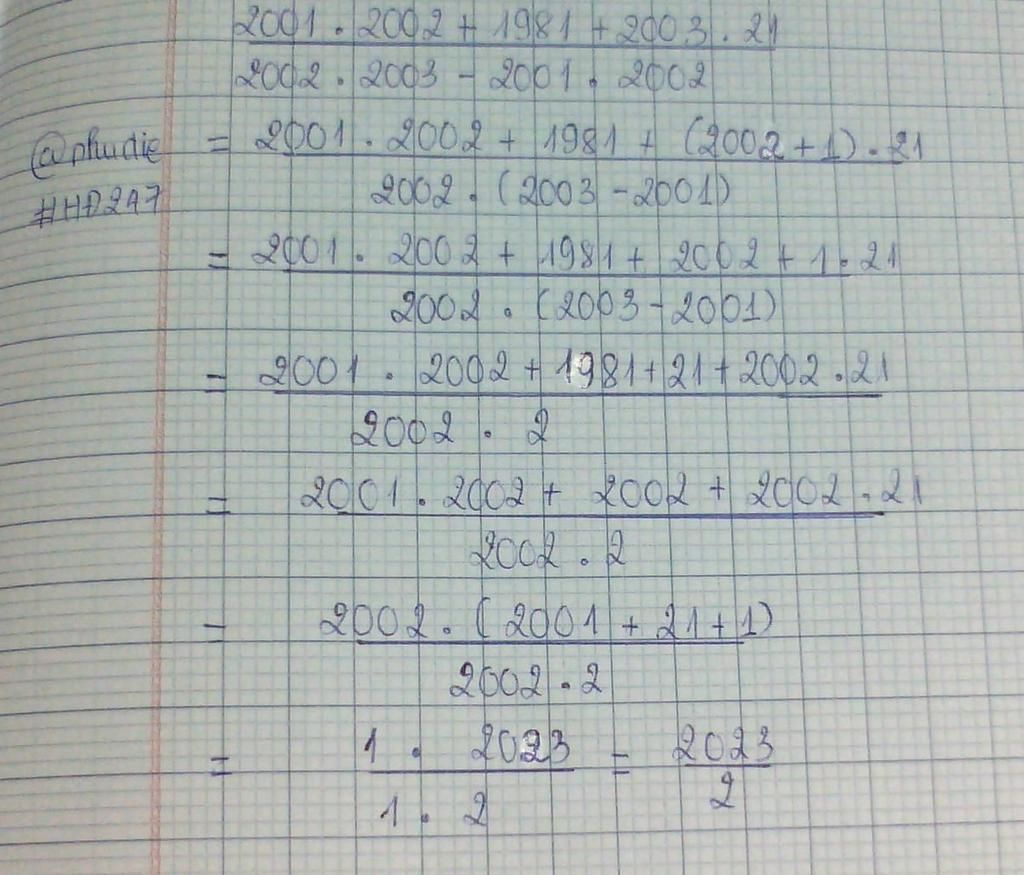 2001 . 2002 + 1981 + 2003 . 21
2002 . 2003 - 2001 . 2002
@phudie = 2001 . 2002 + 1981 + (2002 + 1) . 21
#HD247 2002 . (2003 - 2001)
= 2001 . 2002 + 1981 + 2002 + 1 . 21
2002 . (2003 - 2001)
= 2001 . 2002 + 1981 + 21 + 2002 . 21
2002 . 2
= 2001 . 2002 + 2002 + 2002 . 21
2002 . 2
= 2002 . ( 2001 + 21 + 1)
2002 . 2
= 1 . 2023 = 2023
1 . 2 2